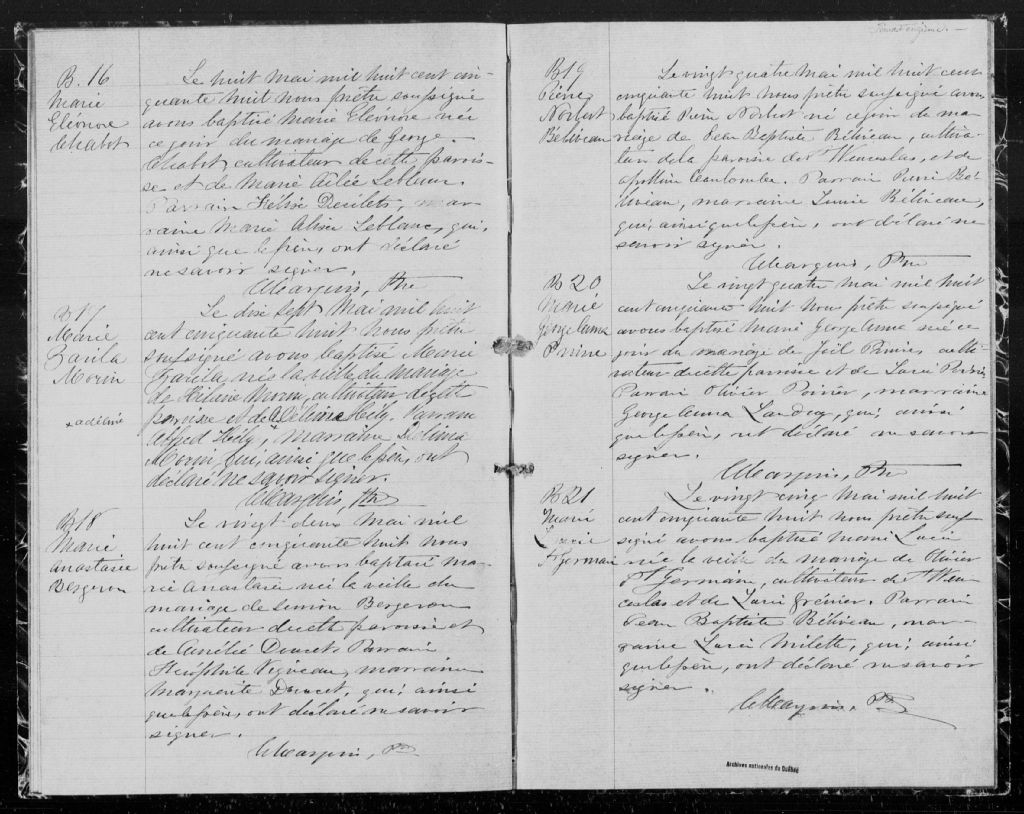 B. 16
Marie
Eléonore
Chabot
Le huit mai mil huit cent cin-
quante huit nous prêtre soussigné
avons baptisé Marie Eléonore née
ce jour du mariage de George
Chabot, cultivateur de cette parois-
se et de Marie Leblanc.
Parrain Désilets, mar-
raine Marie Alisée Leblanc, qui,
ainsi que le père, ont déclaré
ne savoir signer.
C. Marquis, Ptre
B 17
Marie
Zarila
Morin
x adélina
Le dix sept Mai mil huit
cent cinquante huit nous prêtre
soussigné avons baptisé Marie
Zarila, née la veille du mariage
de Hilaire Morin, cultivateur de cette
paroisse et de x Célina Hély. Parrain
Alfred Hély, Marraine Délima
Morin, qui, ainsi que le père, ont
déclaré ne savoir signer.
C. Marquis, Ptre
B 18
Marie
Anastasie
Bergeron
Le vingt deux mai mil
huit cent cinquante huit nous
prêtre soussigné avons baptisé Ma-
rie Anastasie née la veille du
mariage de Simon Bergeron
cultivateur de cette paroisse et
de Aurélie Doucet. Parrain
Théophile Vigneau, marraine
Marguerite Doucet, qui, ainsi
que le père, ont déclaré ne savoir
signer.
C. Marquis, Ptre
B 19
Pierre
Norbert
Béliveau
Le vingt quatre mai mil huit cent
cinquante huit nous prêtre soussigné avons
baptisé Pierre Norbert né ce jour du ma-
riage de Jean Baptiste Béliveau, cultiva-
teur de la paroisse de St Wenceslas, et de
Parrain Pierre Bé-
liveau, marraine Lucie Béliveau,
qui, ainsi que le père, ont déclaré ne
savoir signer.
C. Marquis, Ptre
B 20
Marie
Georgeanna
Poirier
Le vingt quatre mai mil huit
cent cinquante huit nous prêtre soussigné
avons baptisé Marie Georgeanna née ce
jour du mariage de Joël Poirier, culti-
vateur de cette paroisse et de Luce
Parrain Olivier Poirier, marraine
Georgeanna Landry, qui, ainsi
que le père, ont déclaré ne savoir
signer.
C. Marquis, Ptre
B 21
Marie
Lucie
St Germain
Le vingt cinq mai mil huit
cent cinquante huit nous prêtre sous-
signé avons baptisé Marie Lucie
née la veille du mariage de Olivier
St Germain cultivateur de St Wen-
ceslas et de Lucie Grenier. Parrain
Jean Baptiste Béliveau, mar-
raine Lucie Milette, qui, ainsi
que le père, ont déclaré ne savoir
signer.
C. Marquis, Ptre
Archives nationales du Québec